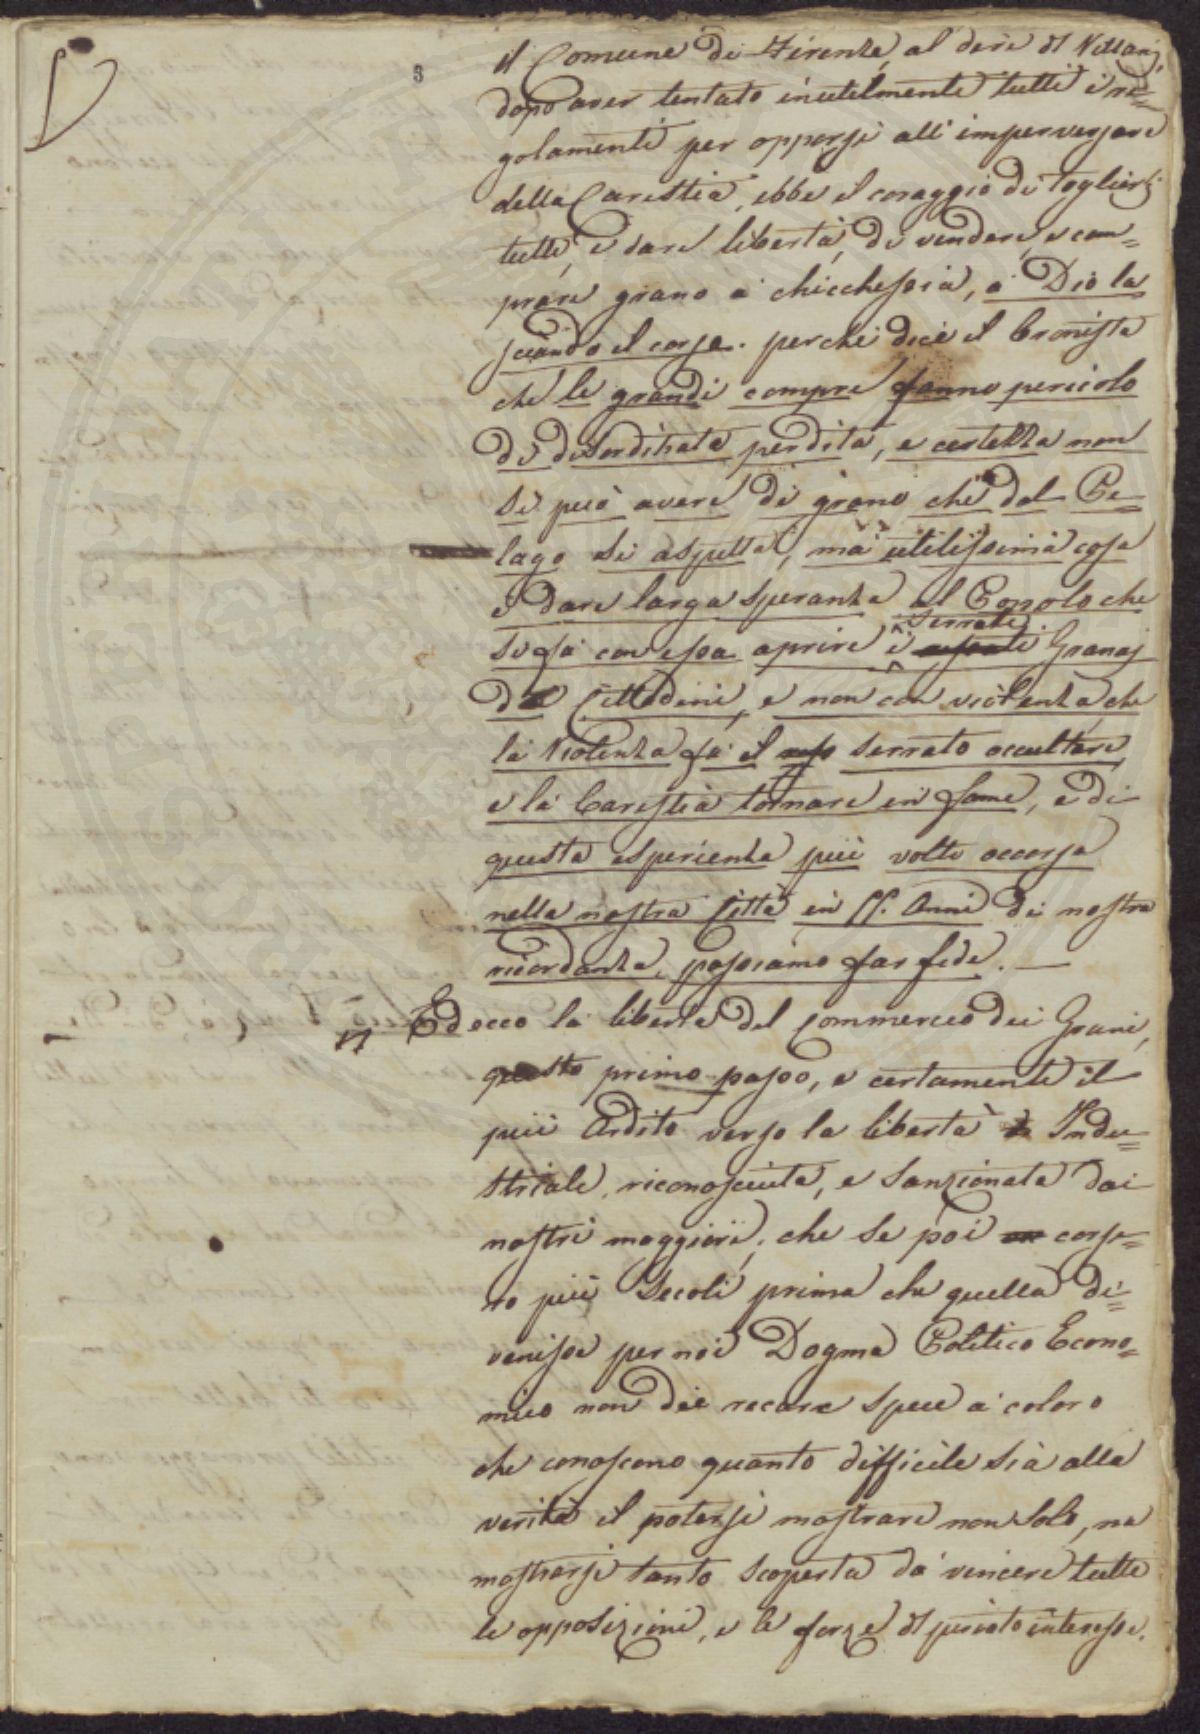 3
il Comune di Firenze, al dire di Villani,
dopo aver tentato inutilmente tutti i re=
golamenti per opporsi all' imperversare
della Carestia, ebbe il coraggio di toglierli
tutti, e dare libertà, di vendere, e com=
prare grano a' chicchessia, a' Dio la
sciando il corso. perchè dice il Cronista
che le grandi compre fanno pericolo
di disorditata perdita, e certezza non
si può avere di grano che dal Pe=
lago si aspetta, mà utilissima cosa
è dare larga speranza al Popolo che
si fà con essa aprire i serrati Granaj
de Cittadini, e non con violenza, che
la violenza fà il serrato occultare,
e la Carestia tornare in fame, e di
questa esperienza più volte occorsa
nella nostra Città in 55. Anni di nostra
ricordanza, possiamo far fede. —
Ed ecco la libertà del Commercio dei Grani,
questo primo passo, e certamente il
più Ardito verso la libertà Indu=
striale, riconosciuta, e sanzionata dai
nostri maggiori, che se poi corse=
ro più Secoli prima che quella di=
venisse per noi Dogma Politico Econo=
mico non dee recare spece a' coloro
che conoscono quanto difficile sia alla
verità il potersi mostrare non solo, ma
mostrarsi tanto scoperta da vincere tutte
le opposizioni, e le forze di privato interesse.